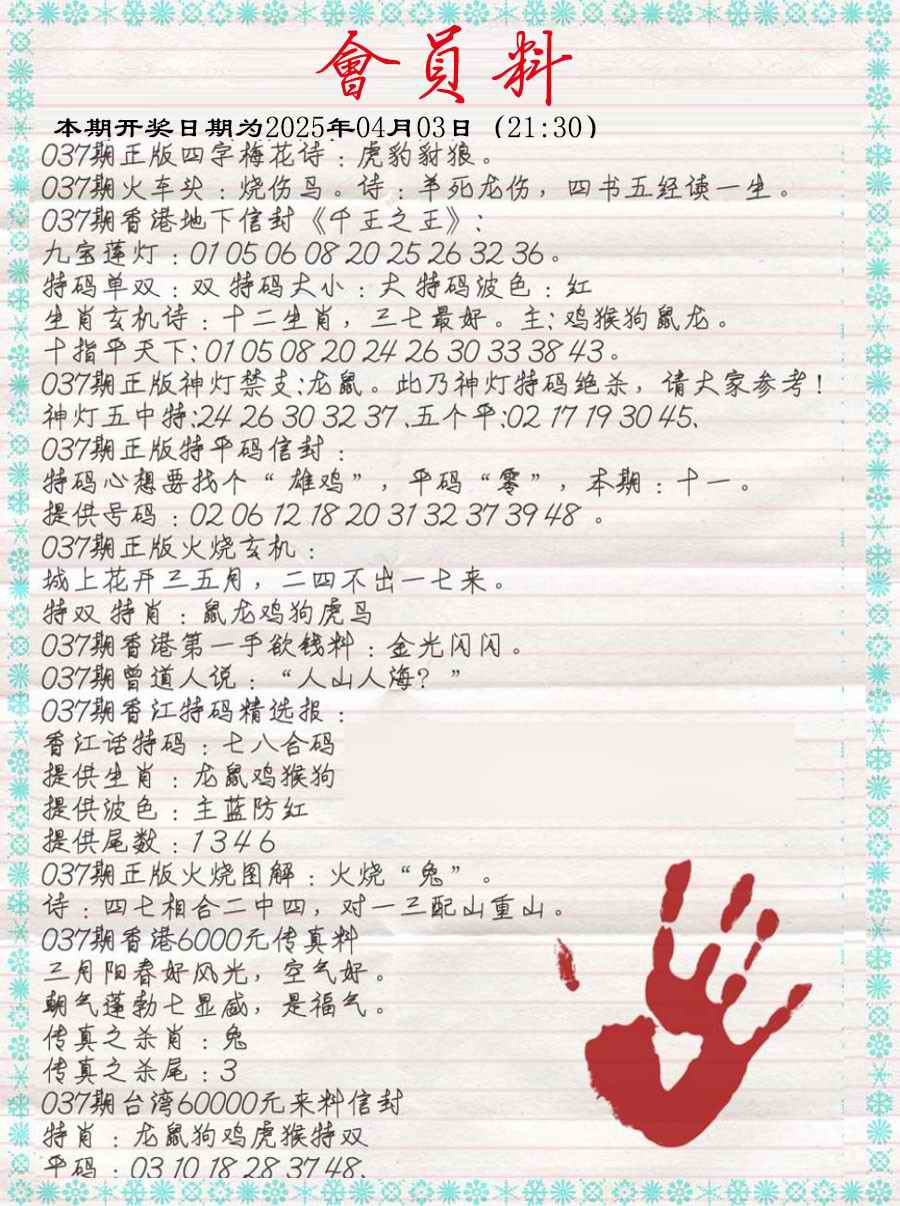 會員料
本期开奖日期为2025年04月03日（21:30）
037期正版四字梅花诗：虎豹豺狼。
037期火车头：烧伤马。诗：羊死龙伤，四书五经读一生。
037期香港地下信封《千王之王》：
九宝莲灯：01 05 06 08 20 25 26 32 36。
特码单双：双 特码大小：大 特码波色：红
生肖玄机诗：十二生肖，三七最好。主：鸡猴狗鼠龙。
十指平天下：01 05 08 20 24 26 30 33 38 43。
037期正版神灯禁支：龙鼠。此乃神灯特码绝杀，请大家参考！
神灯五中特：24 26 30 32 37、五个平：02 17 19 30 45、
037期正版特平码信封：
特码心想要找个“雄鸡”，平码“零”，本期：十一。
提供号码：02 06 12 18 20 31 32 37 39 48 。
037期正版火烧玄机：
城上花开三五月，二四不出一七来。
特双 特肖：鼠龙鸡狗虎马
037期香港第一手欲钱料：金光闪闪。
037期曾道人说：“人山人海？”
037期香江特码精选报：
香江话特码：七八合码
提供生肖：龙鼠鸡猴狗
提供波色：主蓝防红
提供尾数：1 3 4 6
037期正版火烧图解：火烧“兔”。
诗：四七相合二中四，对一三配山重山。
037期香港6000元传真料
三月阳春好风光，空气好。
朝气蓬勃七显威，是福气。
传真之杀肖：兔
传真之杀尾：3
037期台湾60000元来料信封
特肖：龙鼠狗鸡虎猴特双
平码：03 10 18 28 37 48、